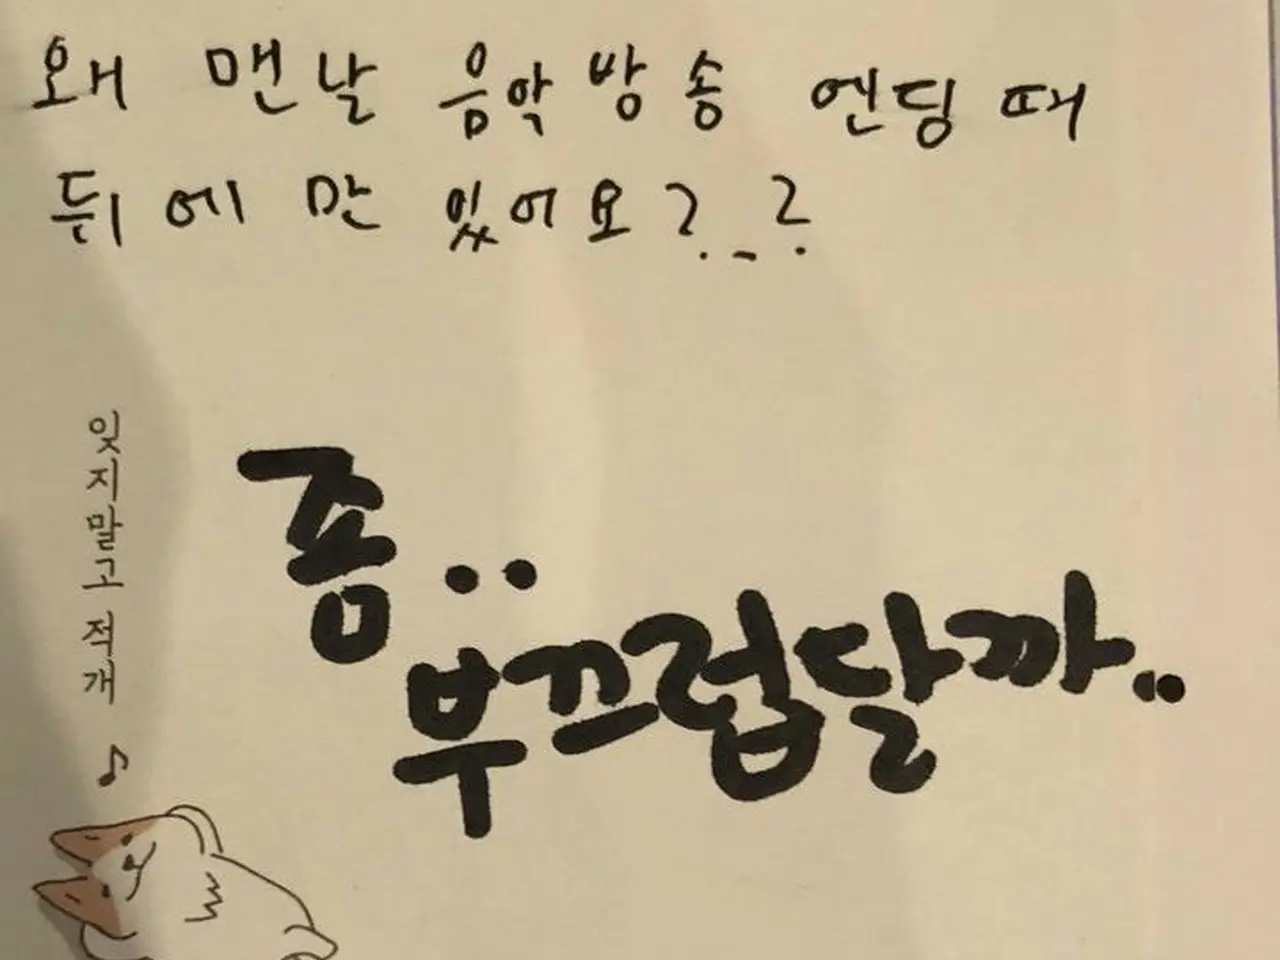 왜 맨날 음악방송 엔딩 때
뒤에만 있어요?_?
좀..
부끄럽달까..
잊지말고 적개 ♪